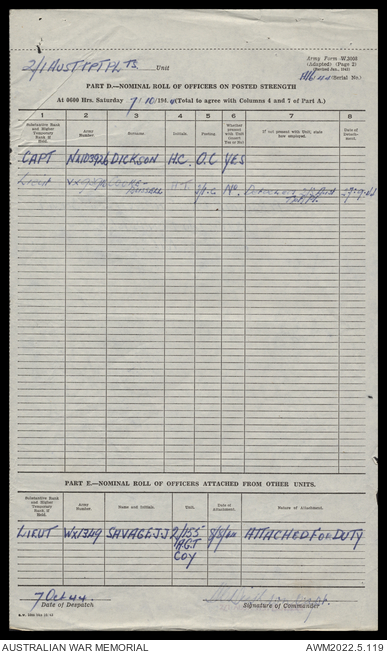 Army Form W.3008
(Adapted) (Page 2)
(Revised Jan., 1943)
2/1 AUST TPT PL TS. Unit
(Serial No.)
PART D.—NOMINAL ROLL OF OFFICERS ON POSTED STRENGTH
At 0600 Hrs. Saturday 7/10/1944 (Total to agree with Columns 4 and 7 of Part A.)
1 2 3 4 5 6 7 8
Substantive Rank and Higher Temporary Rank if Held. Army Number. Surname. Initials. Posting. Whether present with Unit (insert Yes or No) If not present with Unit, state how employed. Date of Detachment.
CAPT NX103926 DICKSON H.C. O.C YES
LIEUT
PART E.—NOMINAL ROLL OF OFFICERS ATTACHED FROM OTHER UNITS.
Substantive Rank and Higher Temporary Rank if Held. Army Number. Name and Initials. Unit. Date of Attachment. Nature of Attachment.
LIEUT WX1349 SAVAGE JJ 2/155 AGT COY 8/8/44 ATTACHED FOR DUTY
7 Oct 44
Date of Despatch Signature of Commander
AUSTRALIAN WAR MEMORIAL AWM2022.5.119